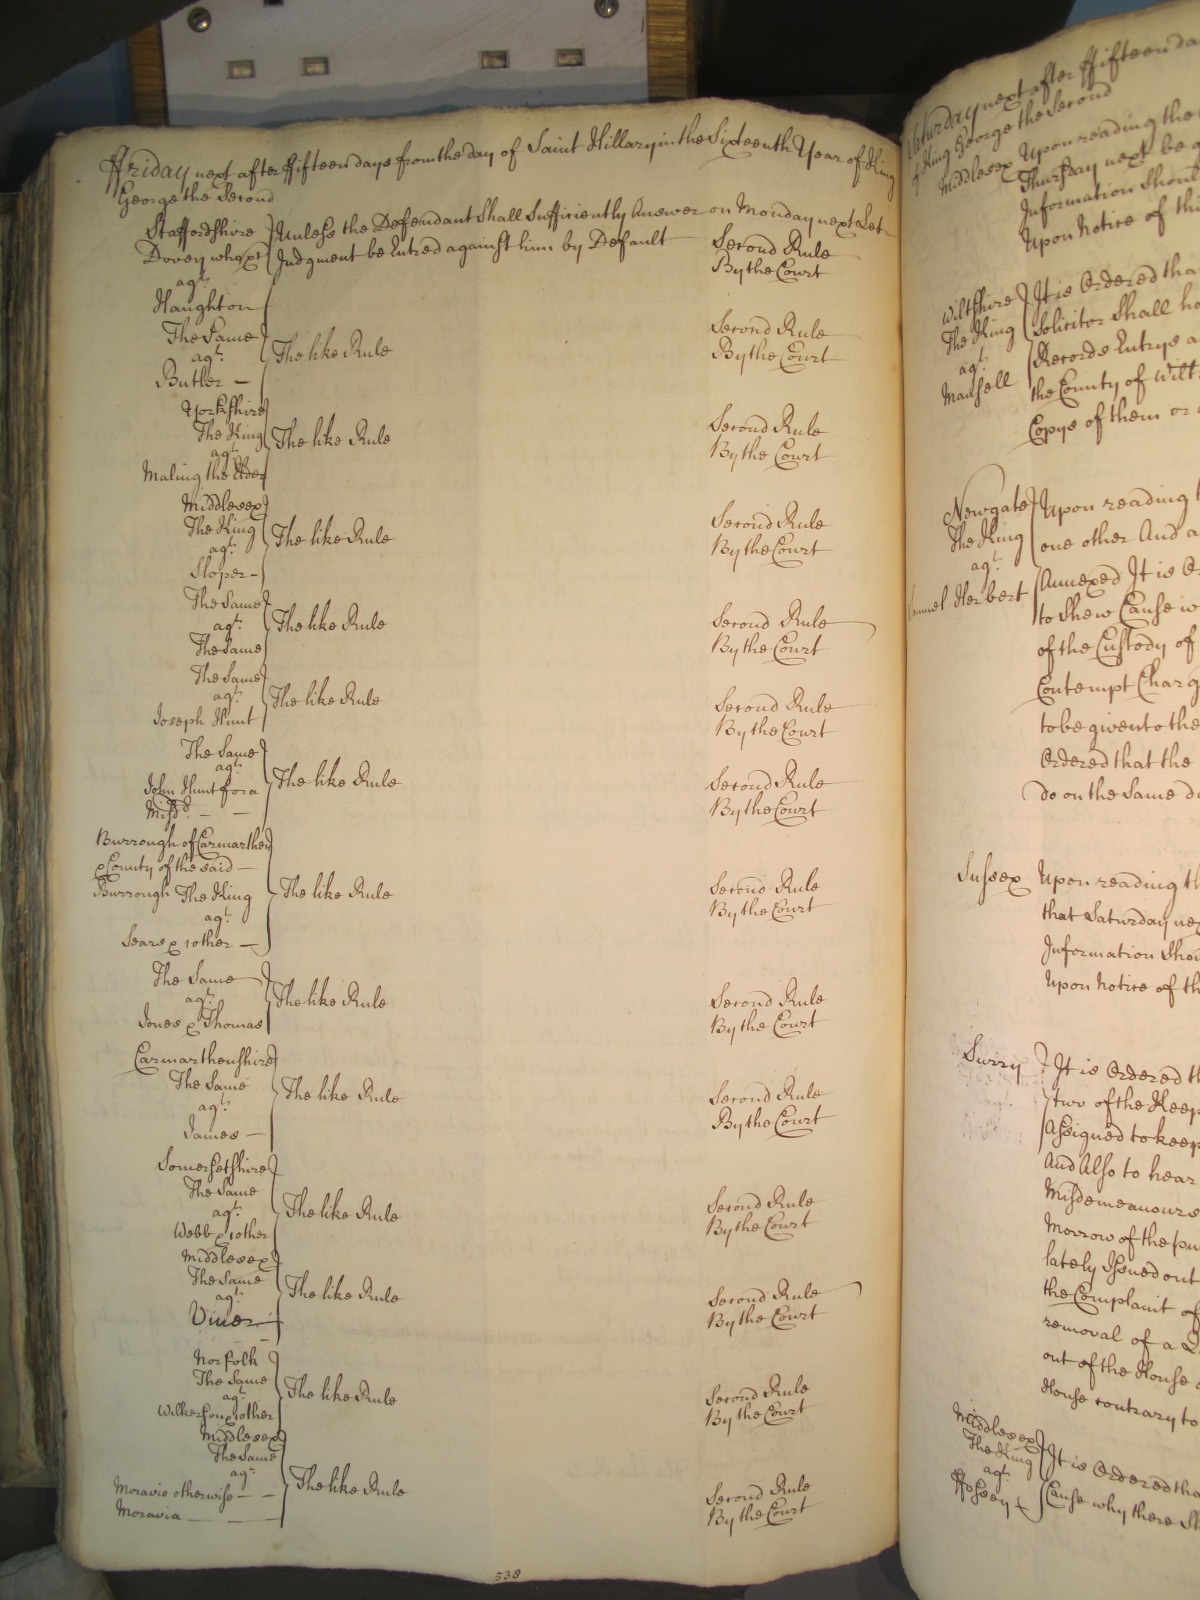 Friday next after ffifteen days from the day of Saint Hillary in the Sixteenth Year of King
George the Second
Staffordshire Unless the Defendant Shall Sufficiently Answer on Monday next Let
Dovey who &ct Judgment be Entred against him by Default Second Rule
agt. By the Court
Haughton
The Same Second Rule
agt. The like Rule By the Court
Butler —
Yorkshire Second Rule
The King The like Rule
agt. By the Court
Maling the Elder
Middlesex Second Rule
The King The like Rule
agt. By the Court
Sloper —
The Same Second Rule
agt. The like Rule By the Court
The Same
The Same
agt. The like Rule Second Rule
Joseph Hunt By the Court
The Same
agt. The like Rule Second Rule
John Hunt for a By the Court
Misdr. — —
Burrough of Carmarthen
& County of the said —
Burrough The King The like Rule Second Rule
agt. By the Court
Sears & 1 other —
The Same
agt. The like Rule Second Rule
Jones & Thomas By the Court
Carmarthenshire
The Same The like Rule Second Rule
agt. By the Court
James —
Somersetshire
The Same The like Rule Second Rule
agt. By the Court
Webb & 1 other
Middlesex
The Same The like Rule Second Rule
agt. By the Court
Viner
Norfolk
The Same The like Rule Second Rule
agt. By the Court
Wilkerson & 1 other
Middlesex
The Same
agt. The like Rule Second Rule
Moravio otherwise — — By the Court
Moravia — —
538
Saturday next after ffifteen da
of King George the Second
Middlesex Upon reading the
Thursday next be g
Information Shoul
Upon Notice of thi
Wiltshire It is Ordered tha
The King Solicitor Shall ha
agt. Records Entrys a
Mansell the County of Wilt
Copys of them or
Newgate Upon reading t
The King one other And a
agt. Annexed It is Or
Herbert to Shew Cause w
of the Custody of
Contempt Charg
to be given to the
Ordered that the
do on the Same da
Sussex Upon reading th
that Saturday nex
Information Shou
Upon Notice of th
Surry It is Ordered th
two of the Keep
Assigned to keep
And Also to hear
Misdemeanours
Morrow of the pu
lately Issued out
the Complaint of
removal of a
out of the House
House contrary to
Middlesex
The King It is Ordered tha
agt. Cause why there Sh